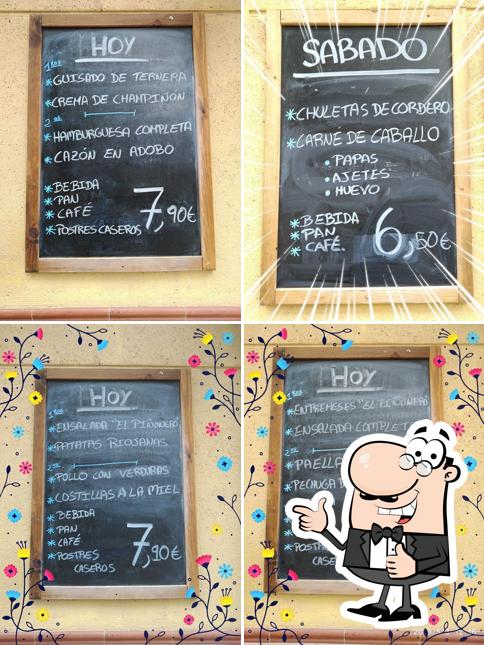 HOY
1ROS
*GUISADO DE TERNERA
*CREMA DE CHAMPIÑÓN
2OS
*HAMBURGUESA COMPLETA
*CAZÓN EN ADOBO
*BEBIDA
*PAN
*CAFÉ
*POSTRES CASEROS
7,90€
SABADO
*CHULETAS DE CORDERO
*CARNE DE CABALLO
• PAPAS
• AJETES
• HUEVO
*BEBIDA
*PAN
*CAFÉ.
6,50€
HOY
1ROS
*ENSALADA "EL PIÑONERO"
*PATATAS RIOJANAS
2OS
*POLLO CON VERDURAS
*COSTILLAS A LA MIEL
*BEBIDA
*PAN
*CAFÉ
*POSTRES
CASEROS
7,90€
HOY
1ROS
*ENTREMESES "EL PIÑONERO"
*ENSALADA
2OS
*PAELLA
*PECHUGA